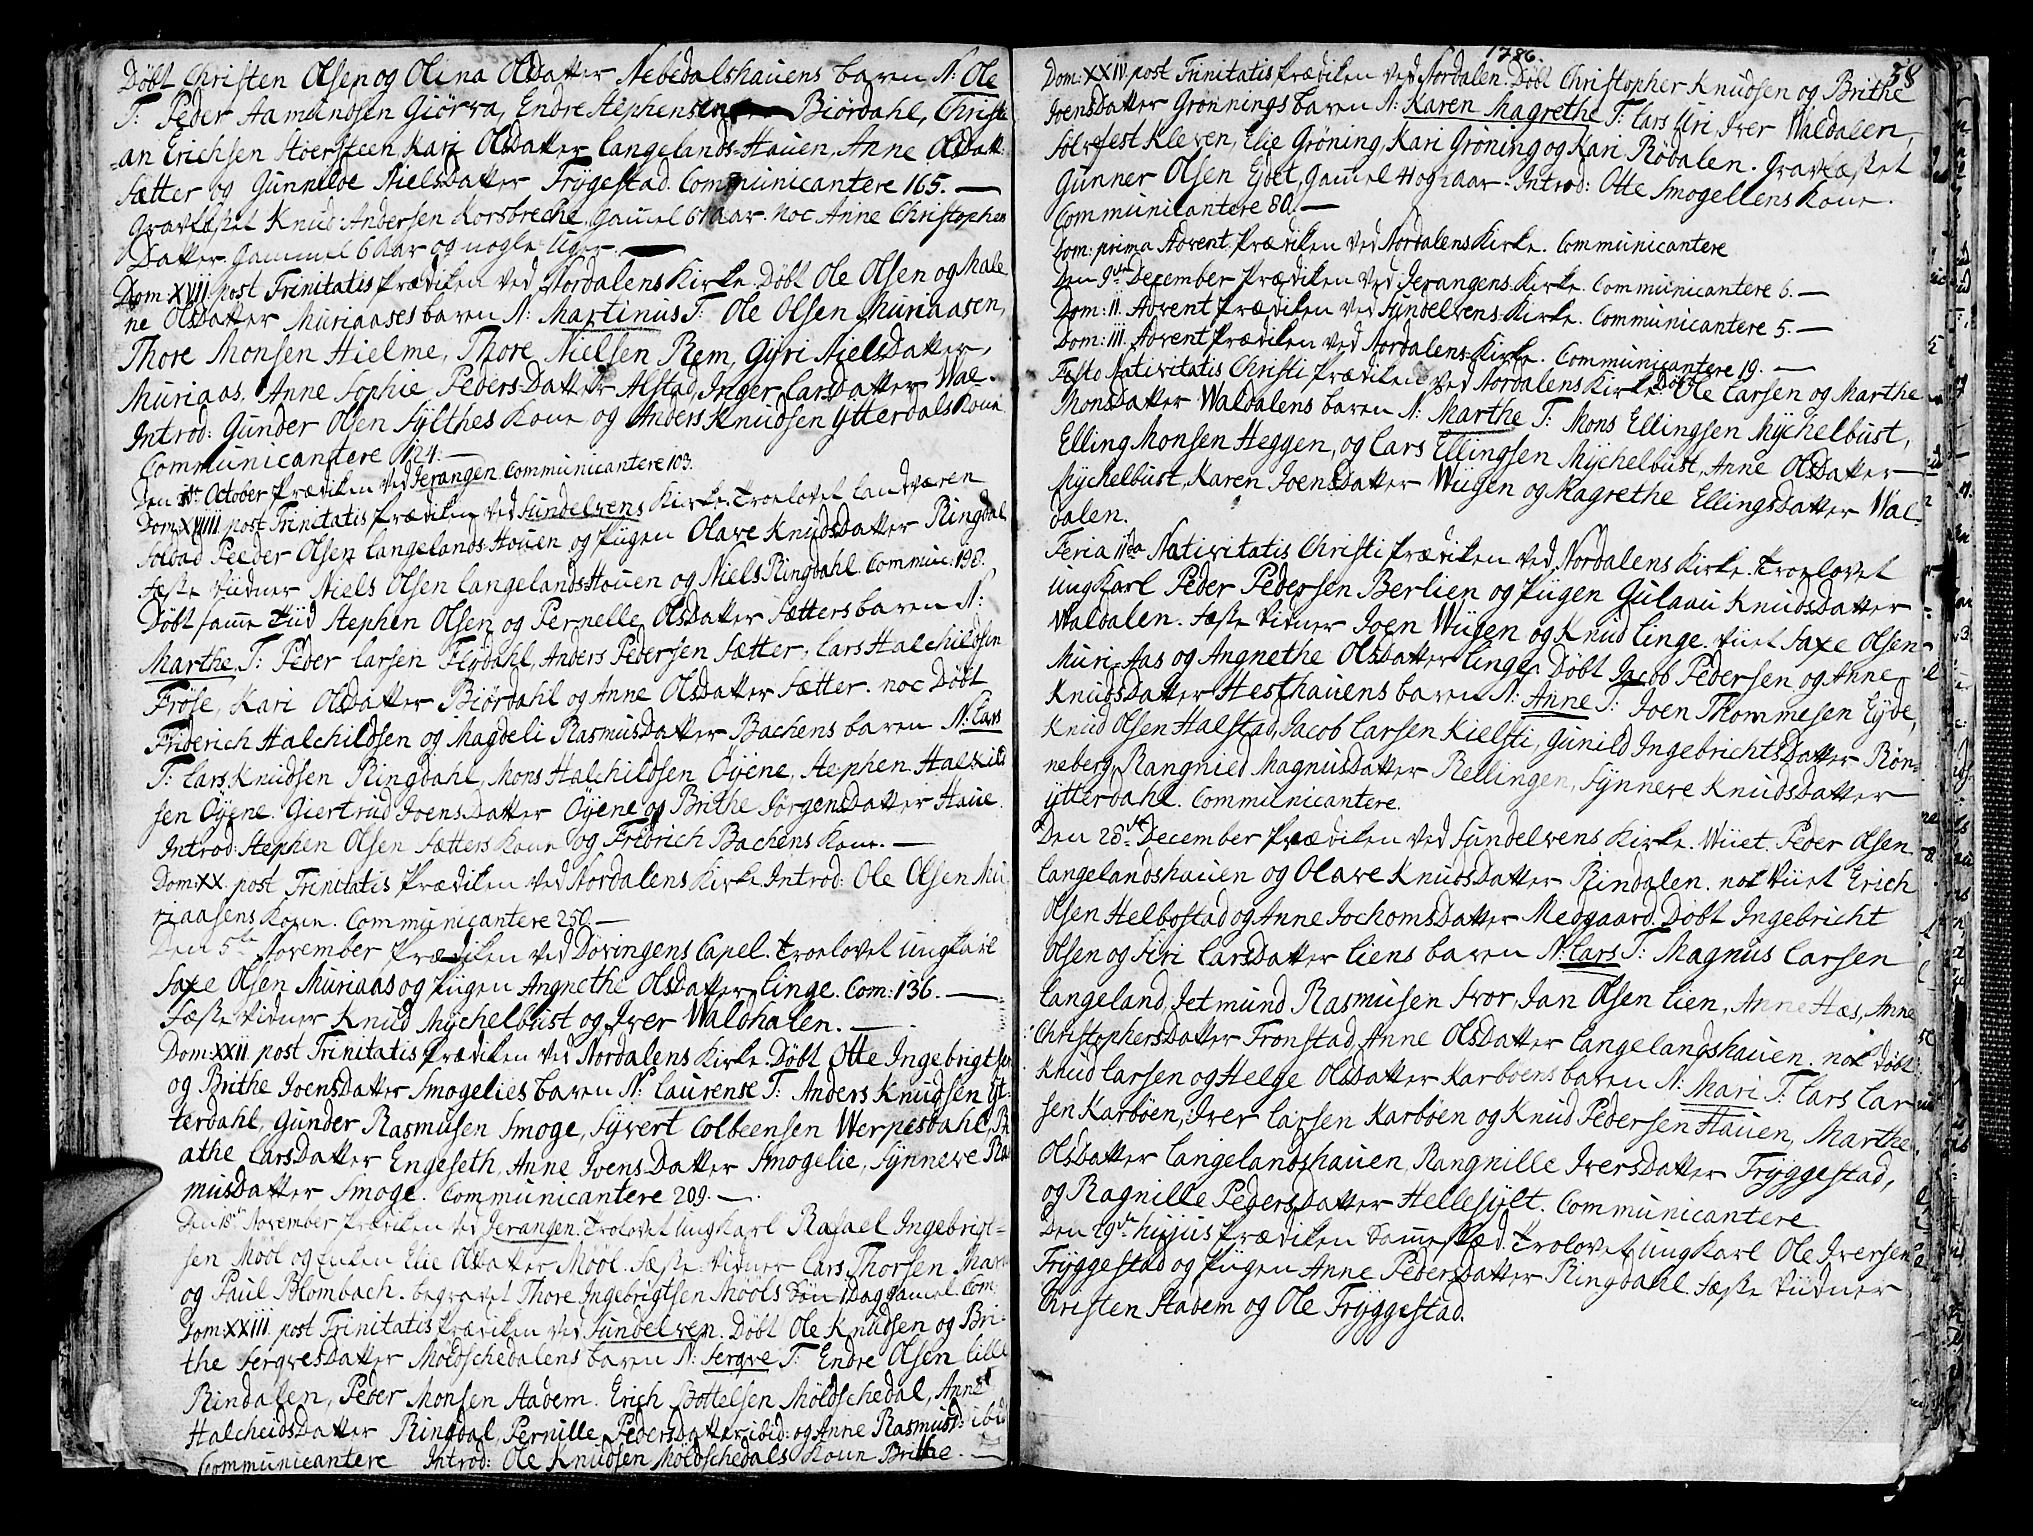 Døbt Christen Olsen og Olina Olsdatter Nebedalshauens baren N: Ole
T: Peder Aamundsen Giørva, Endre Stephensen Biørdahl, Christi
an Erichsen Stoersteen Kari Olsdatter Langelands-Hauen, Anne Olsdatt:
Sætter og Gunnilde Nielsdatter Trygestad. Communicantere 165.—
Gravfæstet Knud Andersen Korsbreche, gamel 61 aar. noc Anne Christophers
Datter gammel 6 Aar og nogle Uger.
Dom: XVII post Trinitatis Prædiken ved Nordalens Kirke. Døbt Ole Olsen og Male
ne Olsdatter Muriaases baren N: Martinus T: Ole Olsen Muriaasen,
Thore Monsen Hielme, Thore Nielsen Rem, Gyri Nielsdatter,
Muriaas. Anne Sophie PedersDatter Alstad, Inger Larsdatter Wal-
Introd: Gunder Olsen Sylthes Kone og Anders Knudsen Ytterdals Kone
Communicantere 124.—
Den 1st October Prædiken ved Jerangen Communicantere 103.
Dom XVIIII post Trinitatis Prædiken ved Sundelvens Kirke. Troelovet Landværen
Soldad Peder Olsen Langelands-Houen og Pigen Olave Knudsdatter Ringdal
Fæste Vidner Niels Olsen LangelandsHouen og Niels Ringdahl. Commun: 198.
Døbt samme Tiid Stephen Olsen og Pernelle Olsdatter Sætters baren N:
Marthe, T: Peder Larsen Flydahl, Anders Pedersen Sætter, Lars Halchildsen
Frøse, Kari Olsdatter Biørdahl og Anne Olsdatter Sætter. noc Døbt
Friderich Halchildsen og Magdeli Rasmusdatter Bachens baren N: Lars
T: Lars Knudsen Ringdahl, Mons Halchildsen Øyene, Stephen Halkild
sen Øyene. Giertrud JoensDatter Øyene og Brithe Jørgensdatter Haue.
Introd: Stephen Olsen Sætters Kone og Fredrich Bachens Kone.—
Dom: XX. post Trinitatis Prædiken ved Nordalens Kirke. Introd: Ole Olsen Mu
riaasens Kone. Communicantere 250—
Den 5te November Prædiken ved Døvingens Capel. Troelovet ungkarl
Saxe Olsen Muriaas og Pigen Angnethe Olsdatter Linge. Com: 136.—
Fæste Vidner Knud Mychelbust og Iver Waldhalen.—
Dom: XXII post Trinitatis Prædiken ved Nordalens Kirke. Døbt Otte Ingebrigtsen
og Brithe Joensdatter Smogelies baren N: Laurense T: Anders Knudsen Yt:
terdahl, Gunder Rasmusen Smoge, Syvert Colbeensen Werpesdahl,
athe LarsDatter Engeseth, Anne JoensDatter Smogelie, Synneve Ra
musdatter Smoge. Communicantere 209.—
Den November Prædiken ved Jerangen. Trolovet ungkarl Rafael Ingebrigt-
sen Møøl og Enken Elie Olsdatter Møøl. Fæste Vidner Lars Thorsen
og Paul Blombach. begravet Thore Ingebrigtsen Møøls Søn 1 Dag gamel Com:
Dom XXIII post Trinitatis Prædiken ved Sundelven. Døbt Ole Knudsen og Bri-
the Sergvesdatter Møldschedalens baren N: Sergve T: Endre Olsen Lille
Rindalen, Peder Monsen Stadem. Erich Bottelsen Møldschedal, Anne
Halcheidsdatter Ringdal, Pernille Pedersdatter ibid: og Anne Rasmusd: ibid
Communicantere Introd: Ole Knudsen Møldschedals Kone Brithe.—
1786.
58
Dom: XXIV. post Trinitatis Prædiken ved Nordalen. Døbt Christopher Knudsen og Brithe
JoensDatter Grønnings baren N: Karen Magrethe T: Lars Uri, Iver Waldalen,
Solvfest Kleven, Elie Grøning, Kari Grøning og Kari Rødalen. Gravfæstet
Gunner Olsen Eydet, Gamel 40 og aar. Introd: Otte Smogeliens Kone.
Communicantere 80.—
Dom: prima Advent Prædiken ved Nordalens Kirke. Communicantere
Den 9de December Prædiken ved Jerangens Kirke. Communicantere 6.—
Dom: II. Advent Prædiken ved Sundelvens Kirke. Communicantere 5.—
Dom: III. Advent Prædiken ved Nordalens Kirke. Communicantere 19.—
Festo Nativitatis Christi Prædiken ved Nordalens Kirke: Døbt Ole Larsen og Marthe
Monsdatter Waldalens baren N: Marthe T: Mons Ellingsen Mychelbust,
Elling Monsen Heggen, og Lars Ellingsen Mychelbust, Anne Olsdatter
Mychelbust, Karen Joensdatter Wügen og Magrethe Ellingsdatter Wal-
dalen.
Feria IIda Nativitatis Christi Prædiken ved Nordalens Kirke. Troelovet
ungkarl Peder Pedersen Berlien og Pigen Gulaau Knudsdatter
Waldalen. Fæste Vidner Joen Wügen og Knud Linge. Viiet Saxe Olsen
Muri-Aas og Angnethe Olsdatter Linge. Døbt Jacob Pedersen og Anne
Knudsdatter Hesthauens baren N: Anne T: Joen Thommesen Eyde,
Knud Olsen Halstad, Jacob Larsen Kielsti, Gunild Ingebrichtsdatter Røn-
neberg, Rangnied Magnusdatter Rellingen, Synneve Knudsdatter
Ytterdahl. Communicantere.
Den 28de December Prædiken ved Sundelvens Kirke. Wiiet. Peder Olsen
Langelandshauen og Olave Knudsdatter Rindalen. nok Viiet Erich
Olsen Helbostad og Anne Jochomsdatter Medgaard. Døbt Ingebricht
Olsen og Siri Larsdatter Liens baren N: Lars T: Magnus Larsen
Langeland, Jetmund Rasmusen Svor, Jan Olsen Lien, Anne Hæs, Anne
Christophersdatter Tronstad, Anne Olsdatter Langelandshauen. nok Døbt
Knud Larsen og Helge Olsdatter Karbøens baren N: Mari T: Lars Lar
sen Karbøen, Iver Larsen Karbøen og Knud Pedersen Hauen, Marthe
Olsdatter Langelandshauen, Rangnille Iversdatter Tryggestad,
og Ragnille Pedersdatter Hellesylt. Communicantere.
Den 29de hujus Prædiken Samestæd. Trolovet ungKarl Ole Iversen
Tryggestad og Pigen Anne Pedersdatter Ringdahl. Fæste Vidner
Christen Stadem og Ole Tryggestad.